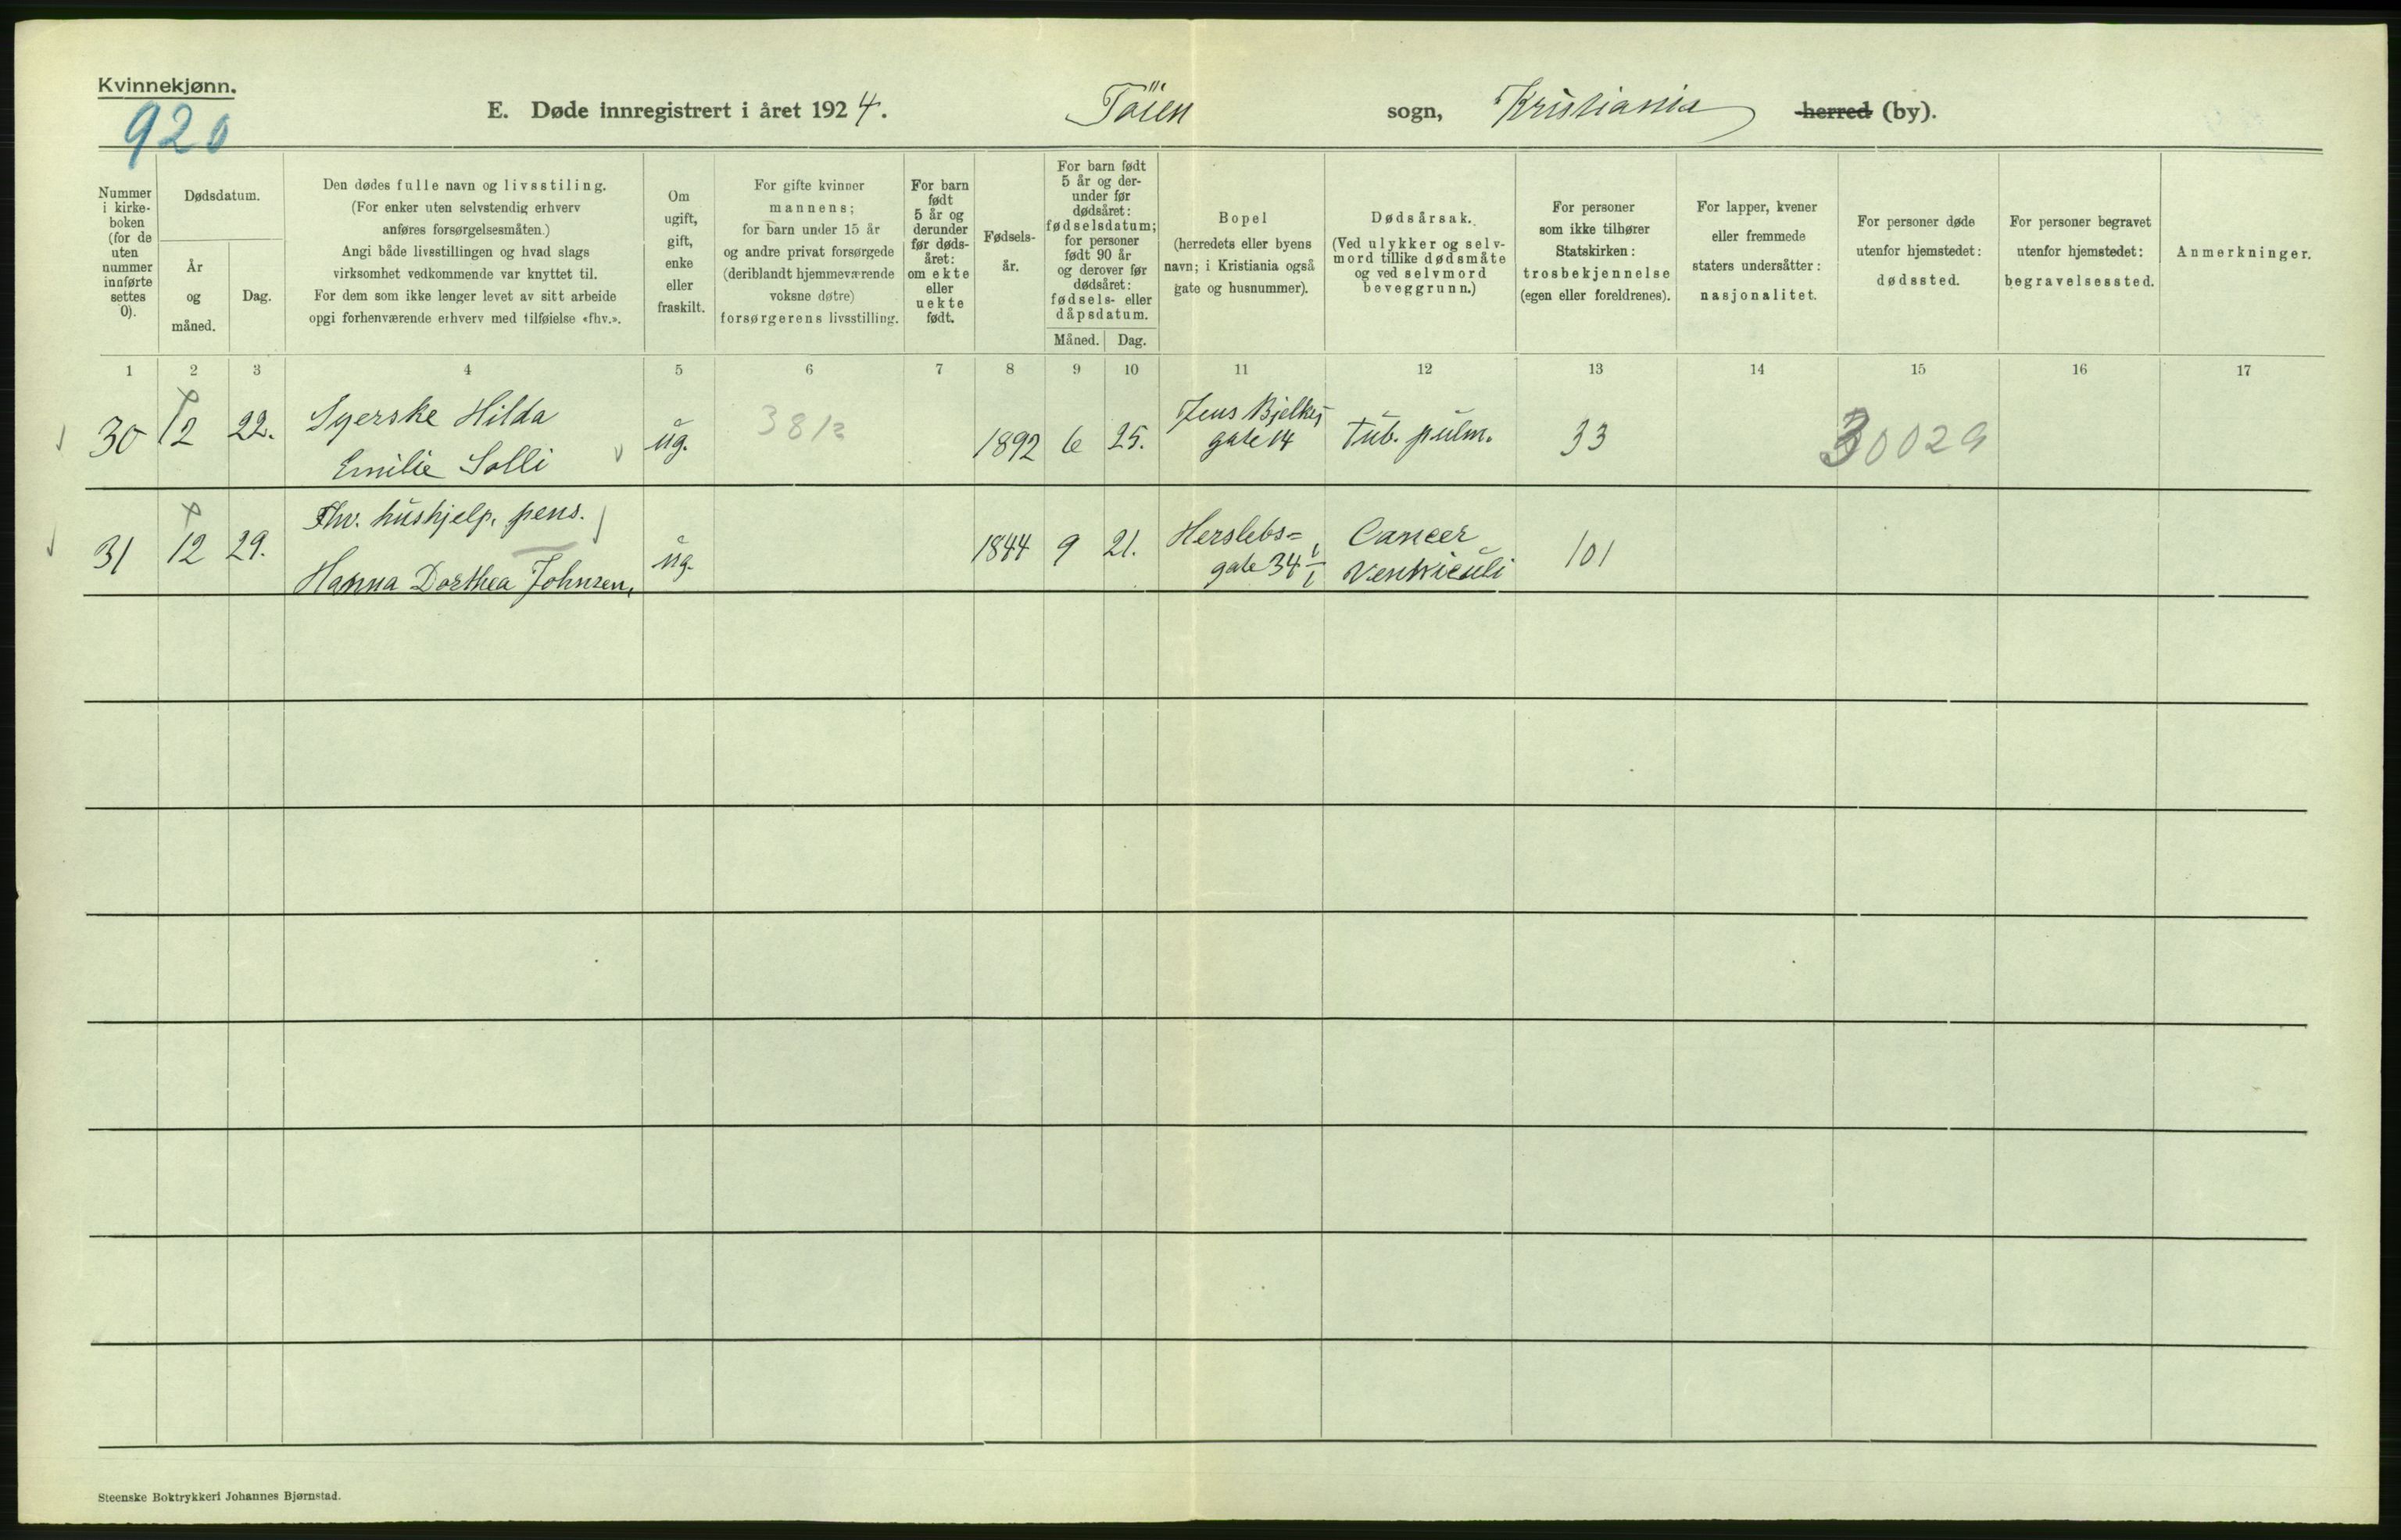 Kvinnekjønn.
920
E. Døde innregistrert i året 1924.
Töien sogn, Kristiania herred (by).
Nummer
i kirke-
boken
(for de
uten
nummer
innførte
settes
0).
Dødsdatum.
År
og
måned.
Dag.
Den dødes fulle navn og livsstiling.
(For enker uten selvstendig erhverv
anføres forsørgelsesmåten.)
Angi både livsstillingen og hvad slags
virksomhet vedkommende var knyttet til.
For dem som ikke lenger levet av sitt arbeide
opgi forhenværende erhverv med tilføielse «fhv.».
Om
ugift,
gift,
enke
eller
fraskilt.
For gifte kvinner
mannens;
for barn under 15 år
og andre privat forsørgede
(deriblandt hjemmeværende
voksne døtre)
forsørgerens livsstilling.
For barn
født
5 år og
derunder
før døds-
året:
om ekte
eller
uekte
født.
Fødsels-
år.
For barn født
5 år og der-
under før
dødsåret:
fødselsdatum;
for personer
født 90 år
og derover før
dødsåret:
fødsels- eller
dåpsdatum.
Måned. Dag.
Bopel
(herredets eller byens
navn; i Kristiania også
gate og husnummer).
Dødsårsak.
(Ved ulykker og selv-
mord tillike dødsmåte
og ved selvmord
beveggrunn.)
For personer
som ikke tilhører
Statskirken:
trosbekjennelse
(egen eller foreldrenes).
For lapper, kvener
eller fremmede
staters undersåtter:
nasjonalitet.
For personer døde
utenfor hjemstedet:
dødssted.
For personer begravet
utenfor hjemstedet:
begravelsessted.
Anmerkninger.
1 2 3 4 5 6 7 8 9 10 11 12 13 14 15 16 17
30 12 22. Syerske Hilda
Emilie Solli
ug. 381 1892 6 25. Jens Bjelkes
gate 14
Tub. pulm. 33 30029
31 12 29. Fhv. hushjelp, pens.
Hanna Dorthea Johnsen,
ug. 1844 9 21. Herslebs=
gate 34
Cancer
Ventriculi
101
Steenske Boktrykkeri Johannes Bjørnstad.